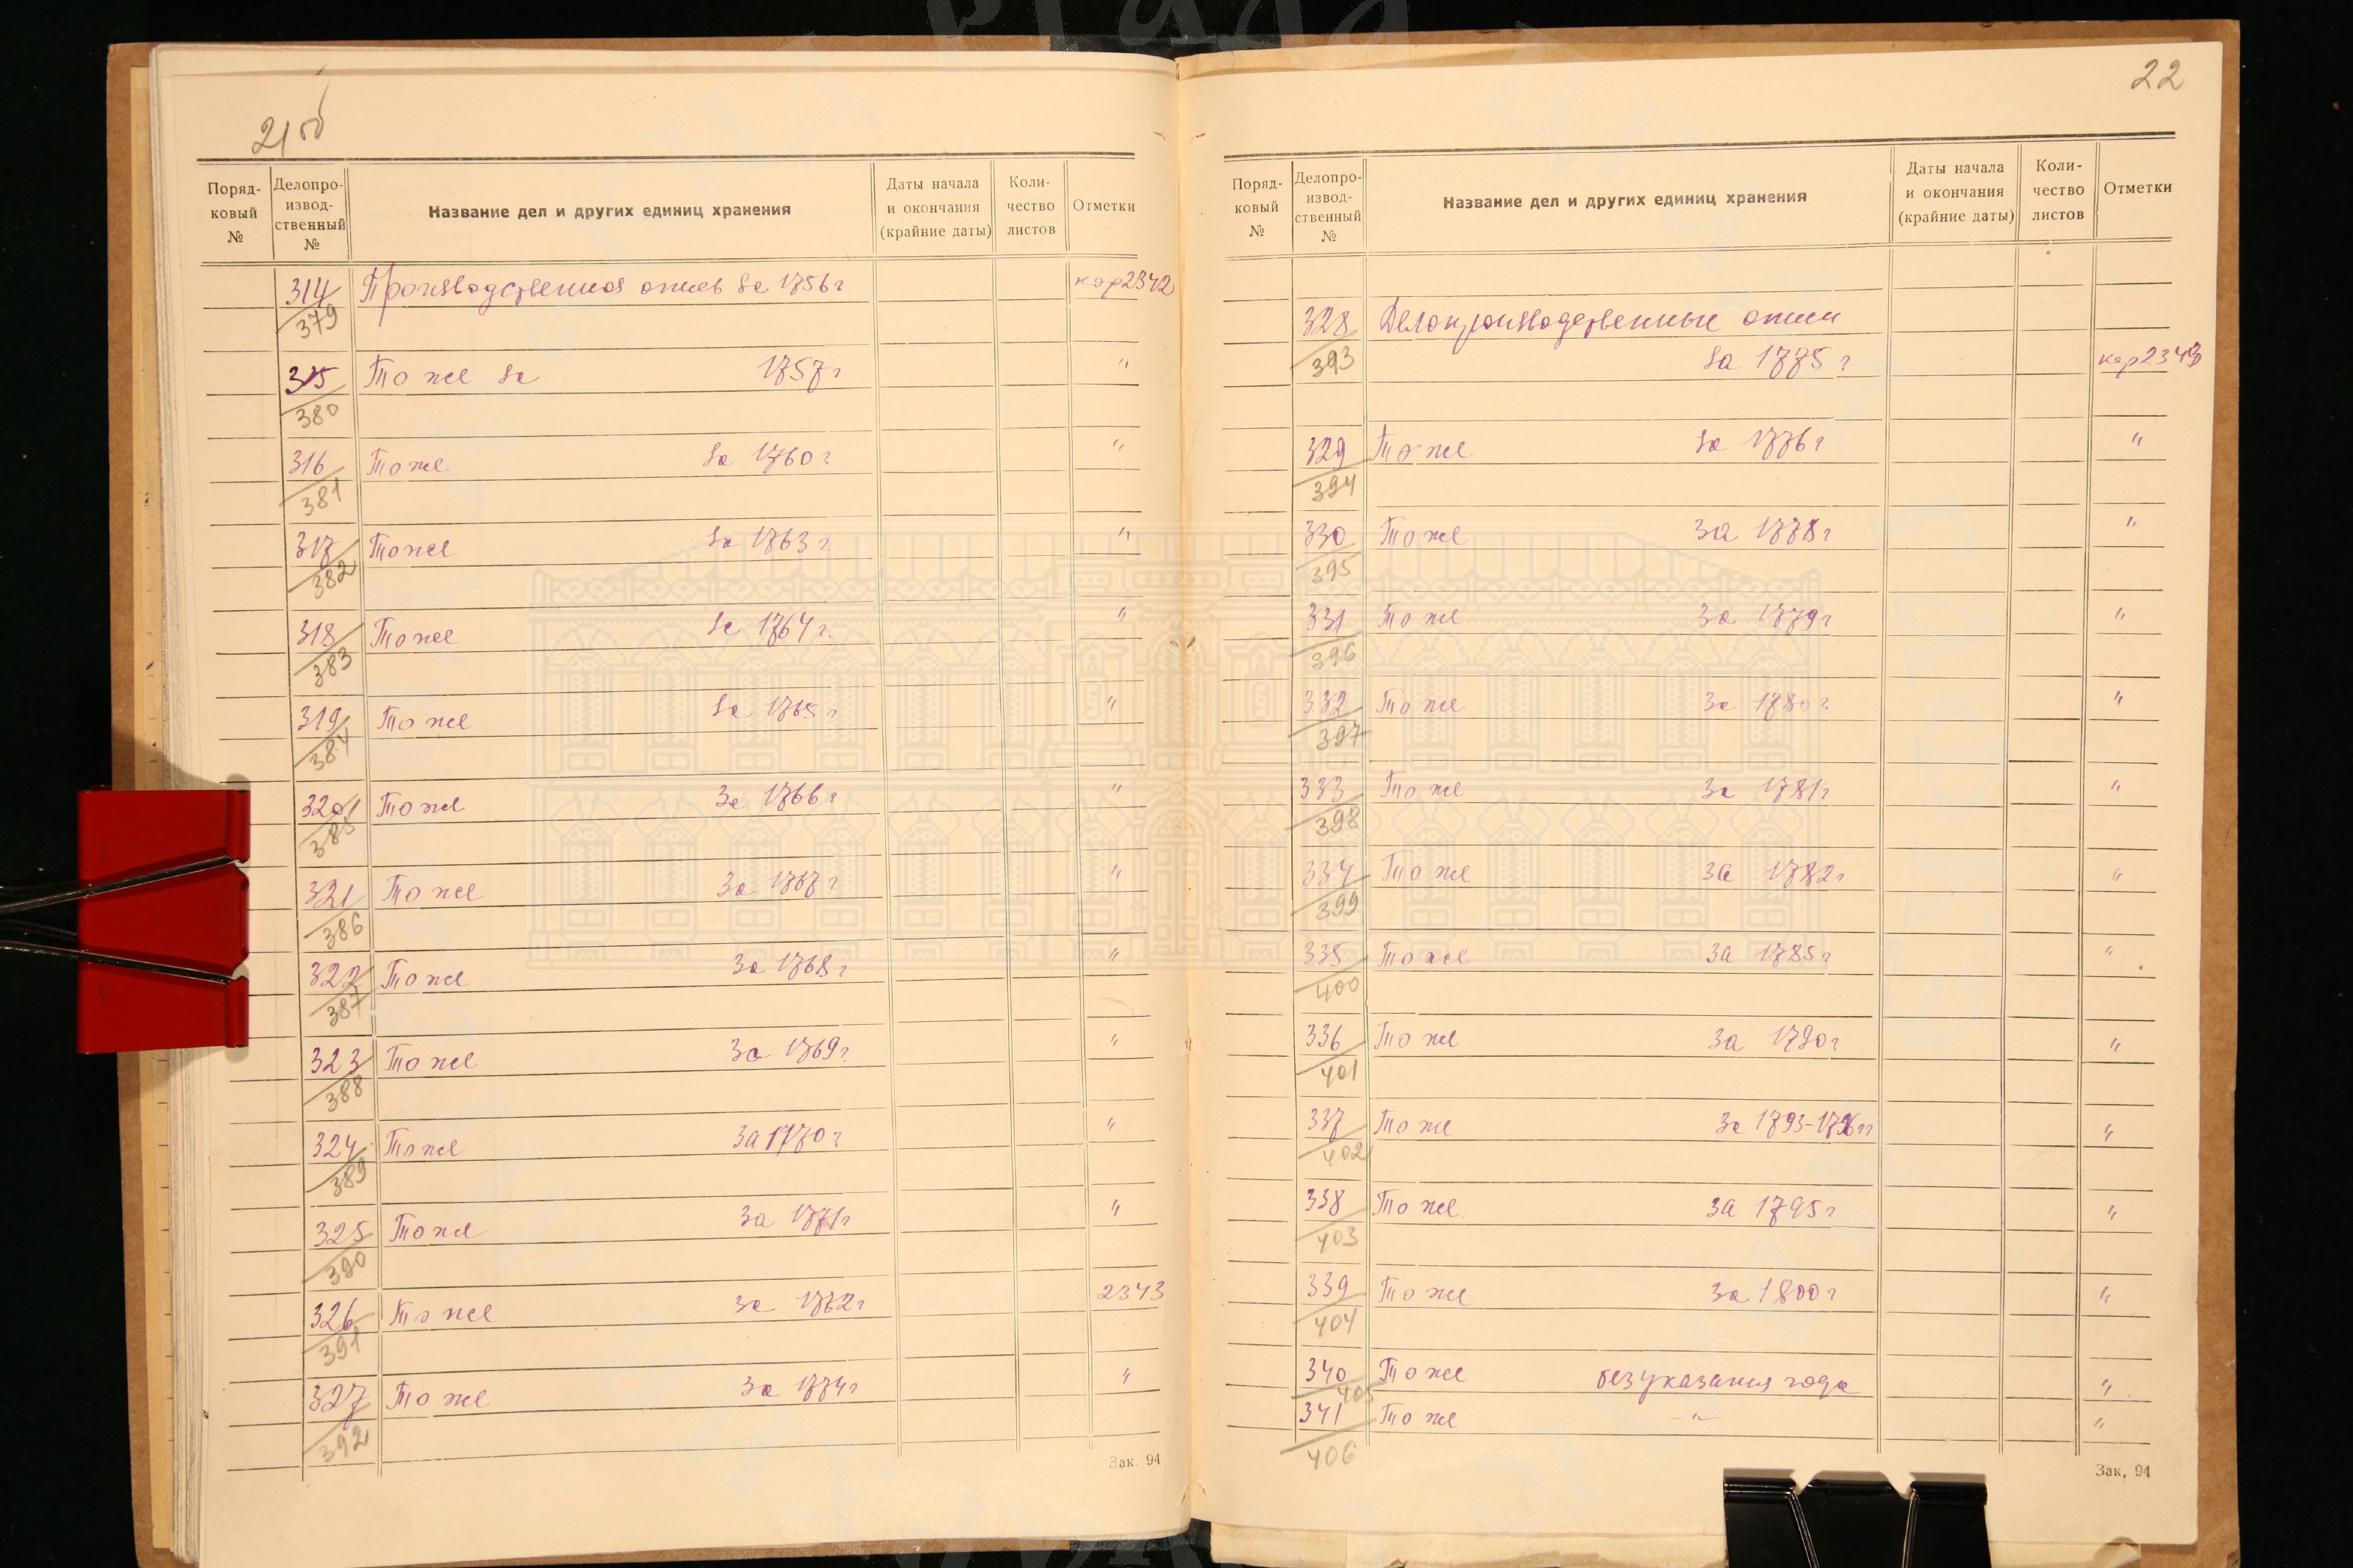 21об
Поряд-
ковый
№
Делопро-
извод-
ственный
№
Название дел и других единиц хранения
Даты начала
и окончания
(крайние даты)
Коли-
чество
листов
Отметки
314 Производственная опись за 1756 г кор 2342
379
315 То же за 1757 г "
380
316 То же за 1760 г. "
381
317 То же за 1763 г. "
382
318 То же за 1764 г. "
383
319 То же за 1765 г "
384
320 То же За 1766 г "
385
321 То же За 1767 г "
386
322 То же За 1768 г "
387
323 То же За 1769 г. "
388
324 То же За 1770 г "
389
325 То же За 1771 г "
390
326 То же За 1762 г 2343
391
327 То же За 1774 г "
392
Зак. 94
22
Поряд-
ковый
№
Делопро-
извод-
ственный
№
Название дел и других единиц хранения
Даты начала
и окончания
(крайние даты)
Коли-
чество
листов
Отметки
328 Делопроизводственные описи
393 за 1775 г кор 2343
329 То же за 1776 г "
394
330 То же За 1778 г "
395
331 То же За 1779 г "
396
332 То же За 1780 г. "
397
333 То же За 1781 г "
398
334 То же За 1782 г "
399
335 То же За 1785 г "
400
336 То же За 1790 г "
401
337 То же За 1793-1796 гг "
402
338 То же За 1795 г "
403
339 То же За 1800 г "
404
340 То же без указания года "
405
341 То же -"- "
406
Зак. 94